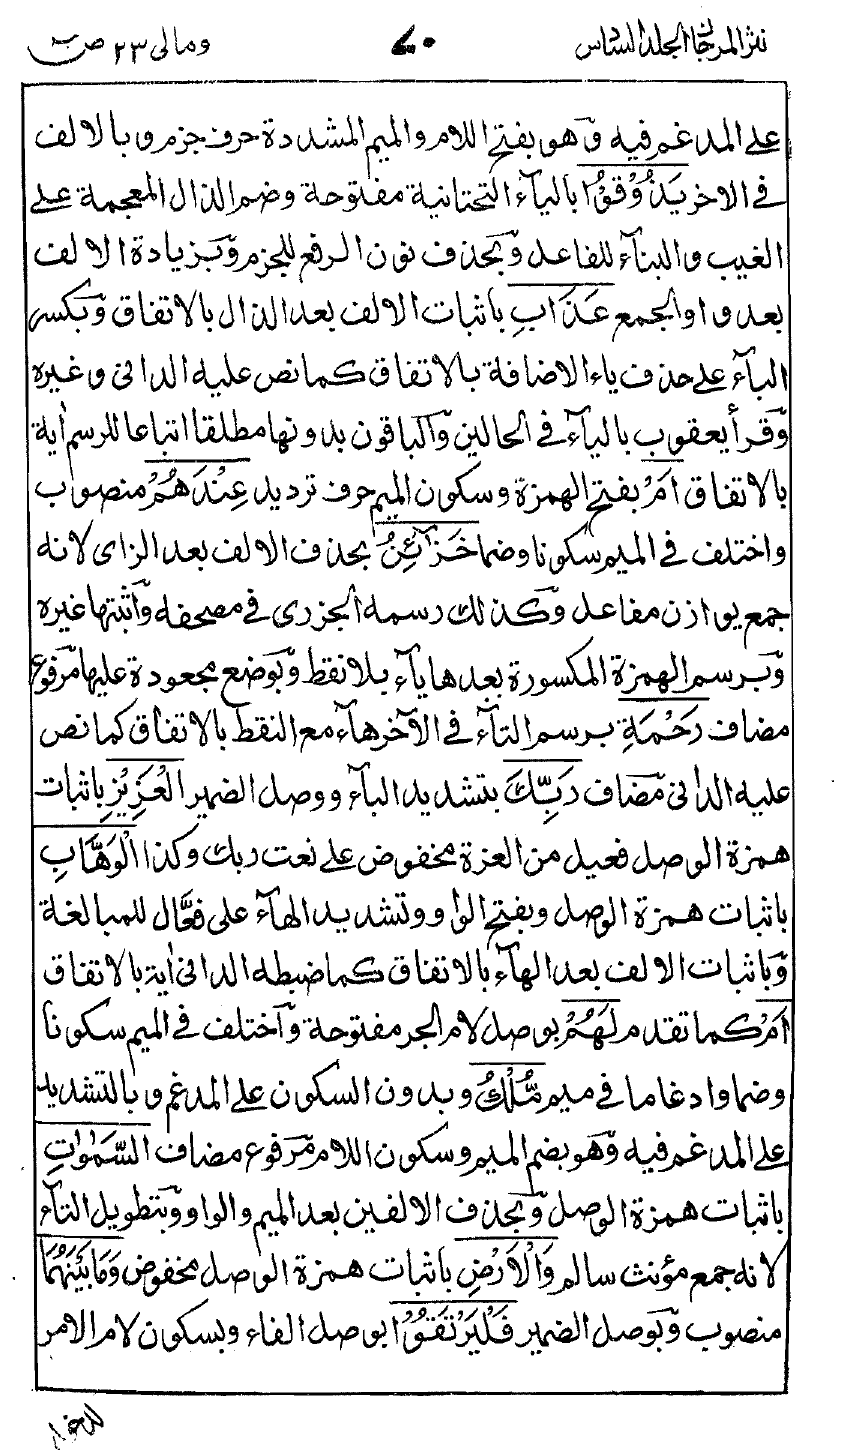 نثر المرجان الجلد السادس ٤٠ ومالى ٢٣ ص
على المدغم فيه وَهو بفتح اللام والميم المشددة حرف جزم وبالالف
فى الاخر يَذُوْقُوْا بالياۤء التحتانية مفتوحة وضم الذال المعجمة على
الغيب والبناۤء للفاعل وَبحذف نون الرفع للجزم وَبزيادة الالف
بعد واو الجمع عَذَابِ باثبات الالف بعد الذال بالاتفاق وَبكسر
الباۤء على حذف ياء الاضافة بالاتفاق كما نص عليه الدانى وغيره
وَقرأ يعقوب بالياۤء فى الحالين وَالباقون بدونها مطلقا اتباعا للرسم اٰية
بالاتفاق اَمْ بفتح الهمزة وسكون الميم حرف ترديد عِنْدَهُمْ منصوب
واختلف فى الميم سكونا وضما خَزَاۤئِنُ بحذف الالف بعد الزاى لانه
جمع يوازن مفاعل وَكذلك رسمه الجزرى فى مصحفه وَاثبتها غيره
وَبرسم الهمزة المكسورة بعدها ياۤء بلا نقط وَبوضع مجعودة عليها مَرفوع
مضاف رَحْمَةِ برسم التاۤء فى الاۤخر هاۤء مع النقط بالاتفاق كما نص
عليه الدانى مَضاف رَبِّكَ بتشديد الباۤء ووصل الضمير الْعَزِيْزِ باثبات
همزة الوصل فعيل من العزة مخفوض على نعت ربك وكذا الْوَهَّابِ
باثبات همزة الوصل وبفتح الواو وتشديد الهاۤء على فعَّال للمبالغة
وَباثبات الالف بعد الهاۤء بالاتفاق كما ضبطه الدانى اٰية بالاتفاق
اَمْ كما تقدم لَهُمْ بوصل لام الجر مفتوحة وَاختلف فى الميم سكونا
وضما وادغاما فى ميم مُّلْكُ وبدون السكون على المدغم وبالتشديد
على المدغم فيه وَهو بضم الميم وسكون اللام مَرفوع مضاف السَّمٰوٰتِ
باثبات همزة الوصل وَبحذف الالفين بعد الميم والواو وَبتطويل التاۤء
لانه جمع مؤنث سالم وَالْاَرْضِ باثبات همزة الوصل مخفوض وَمَا بَيْنَهُمَا
منصوب وَبوصل الضمير فَلْيَرْتَقُوْا بوصل الفاء وبسكون لام الامر